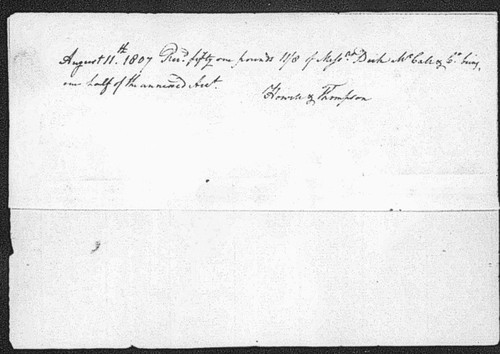 August 11th. 1807 Recd. fifty one pounds 11/8 of Messrs. McCale & Co. being
one half of the annexed Acct.
Howell & Thompson